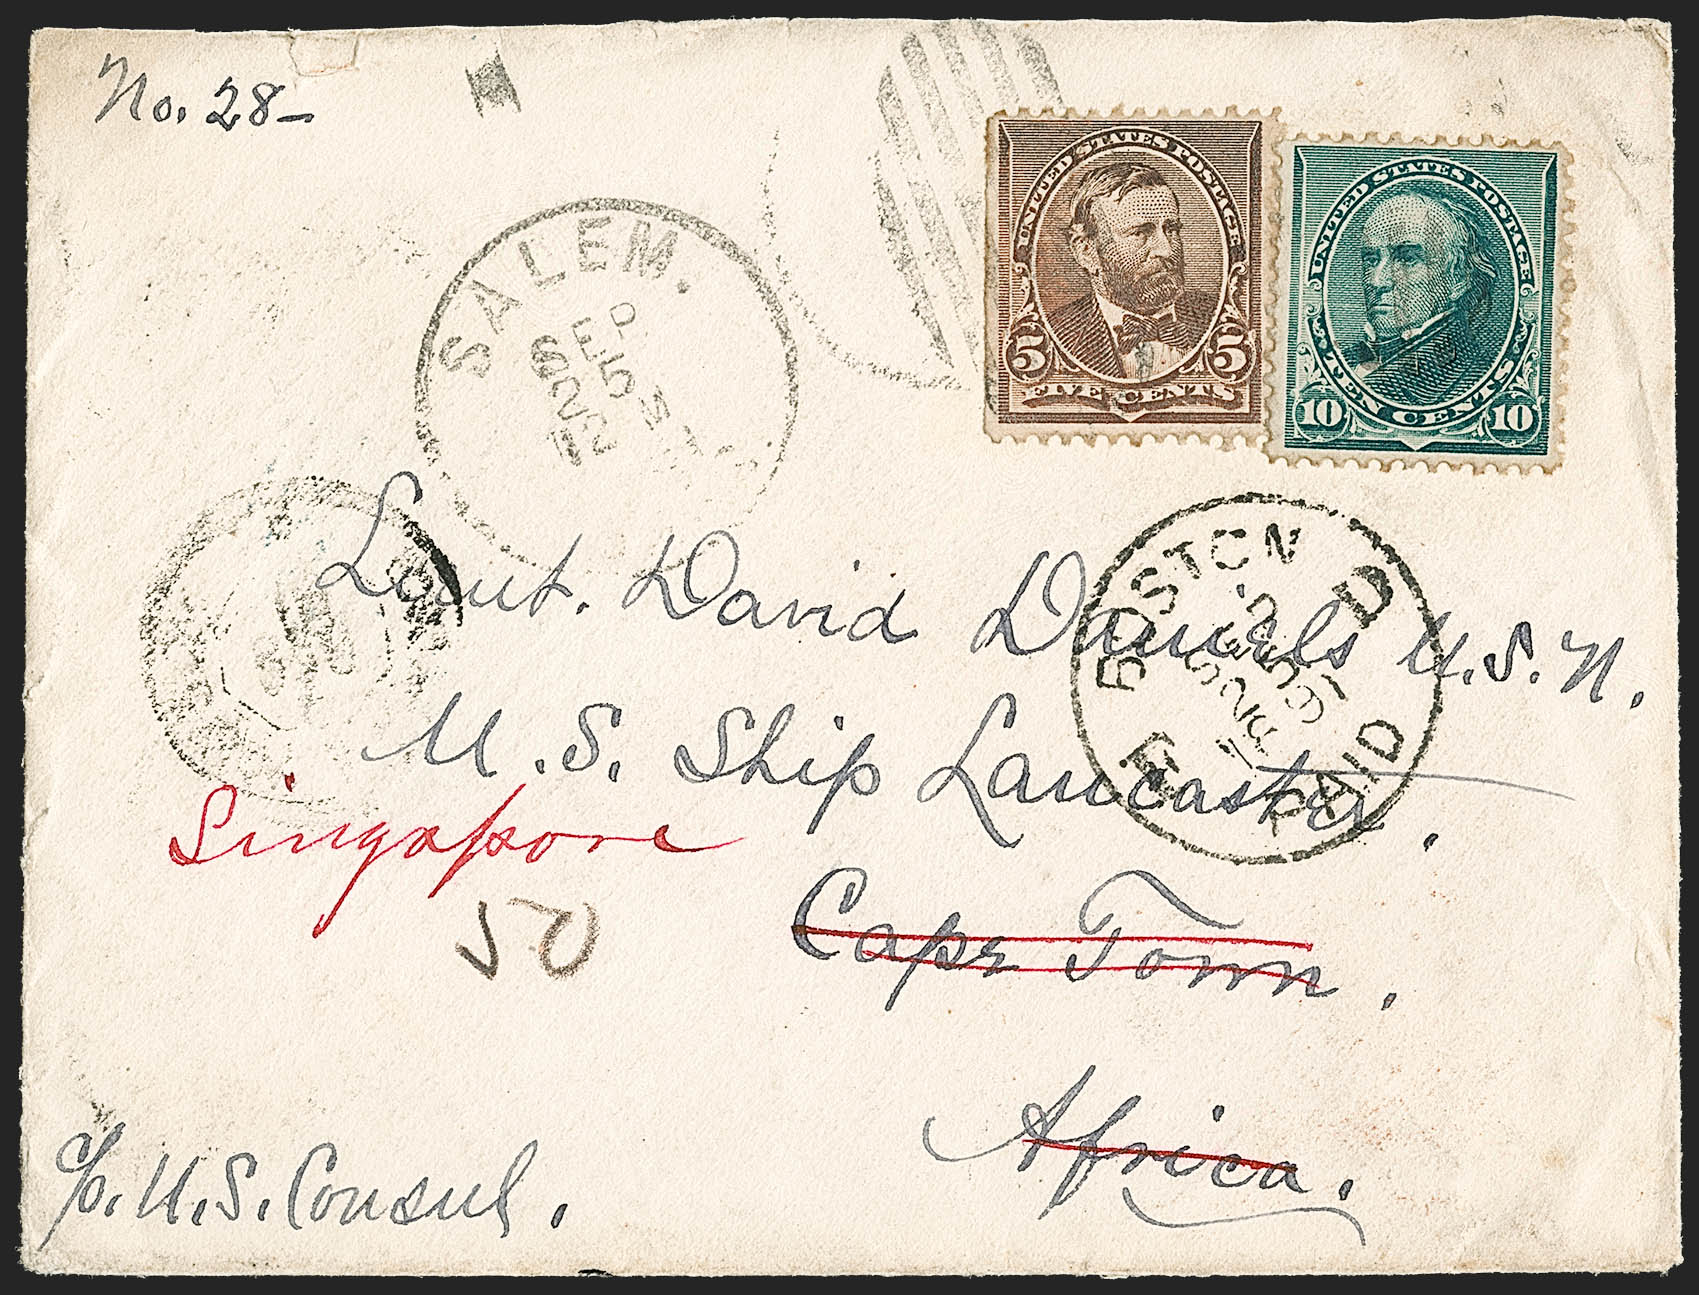 No. 28-
UNITED STATES POSTAGE
5 5
FIVE CENTS
UNITED STATES POSTAGE
10 10
TEN CENTS
SALEM.
SEP
5
BOSTON
PAID
Lieut. David Daniels U.S.N.
U.S. Ship Lancaster.
Singapore
50
Cape Town.
Africa.
c/o. U.S. Consul.